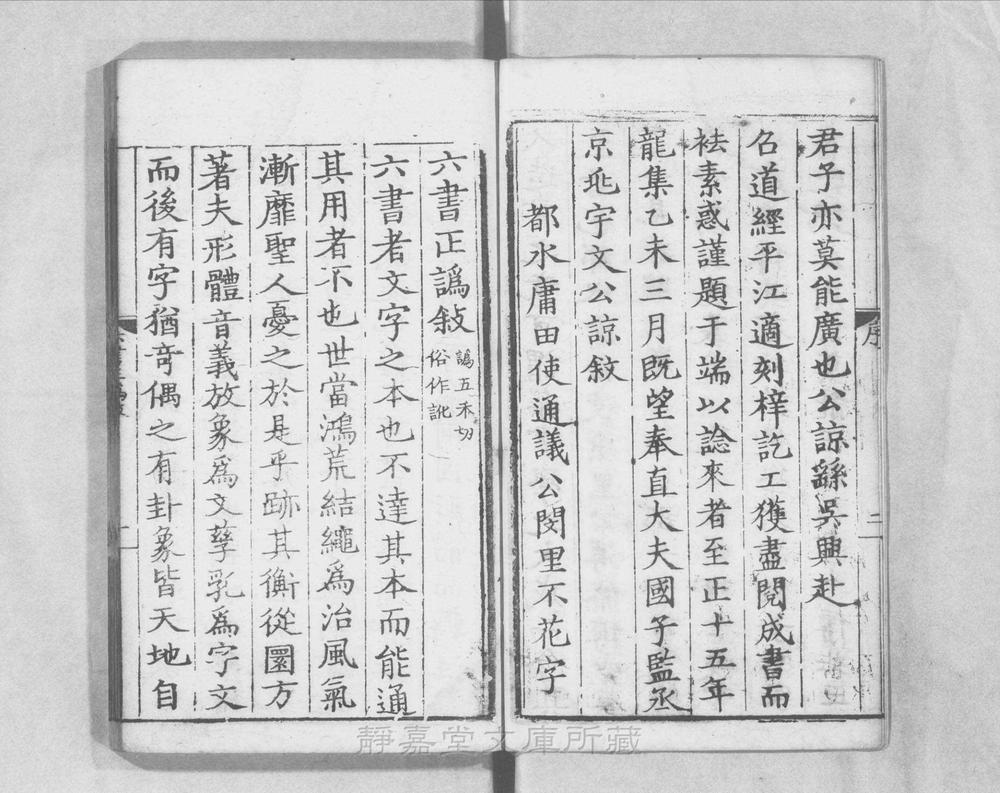 君子亦莫能廣也公諒繇吳興赴
召道經平江適刻梓訖工獲盡閱成書而
袪素惑謹題于端以諗來者至正十五年
龍集乙未三月既望奉直大夫國子監丞
京兆宇文公諒敘
都水庸田使通議公閔里不花字
序
二
六書正譌敍
譌五禾切
俗作訛
六書者文字之本也不達其本而能通
其用者不也世當鴻荒結繩爲治風氣
漸靡聖人憂之於是乎跡其衡從圜方
著夫形體音義放象爲文孳乳爲字文
而後有字猶竒偶之有卦象皆天地自
靜嘉堂文庫所藏